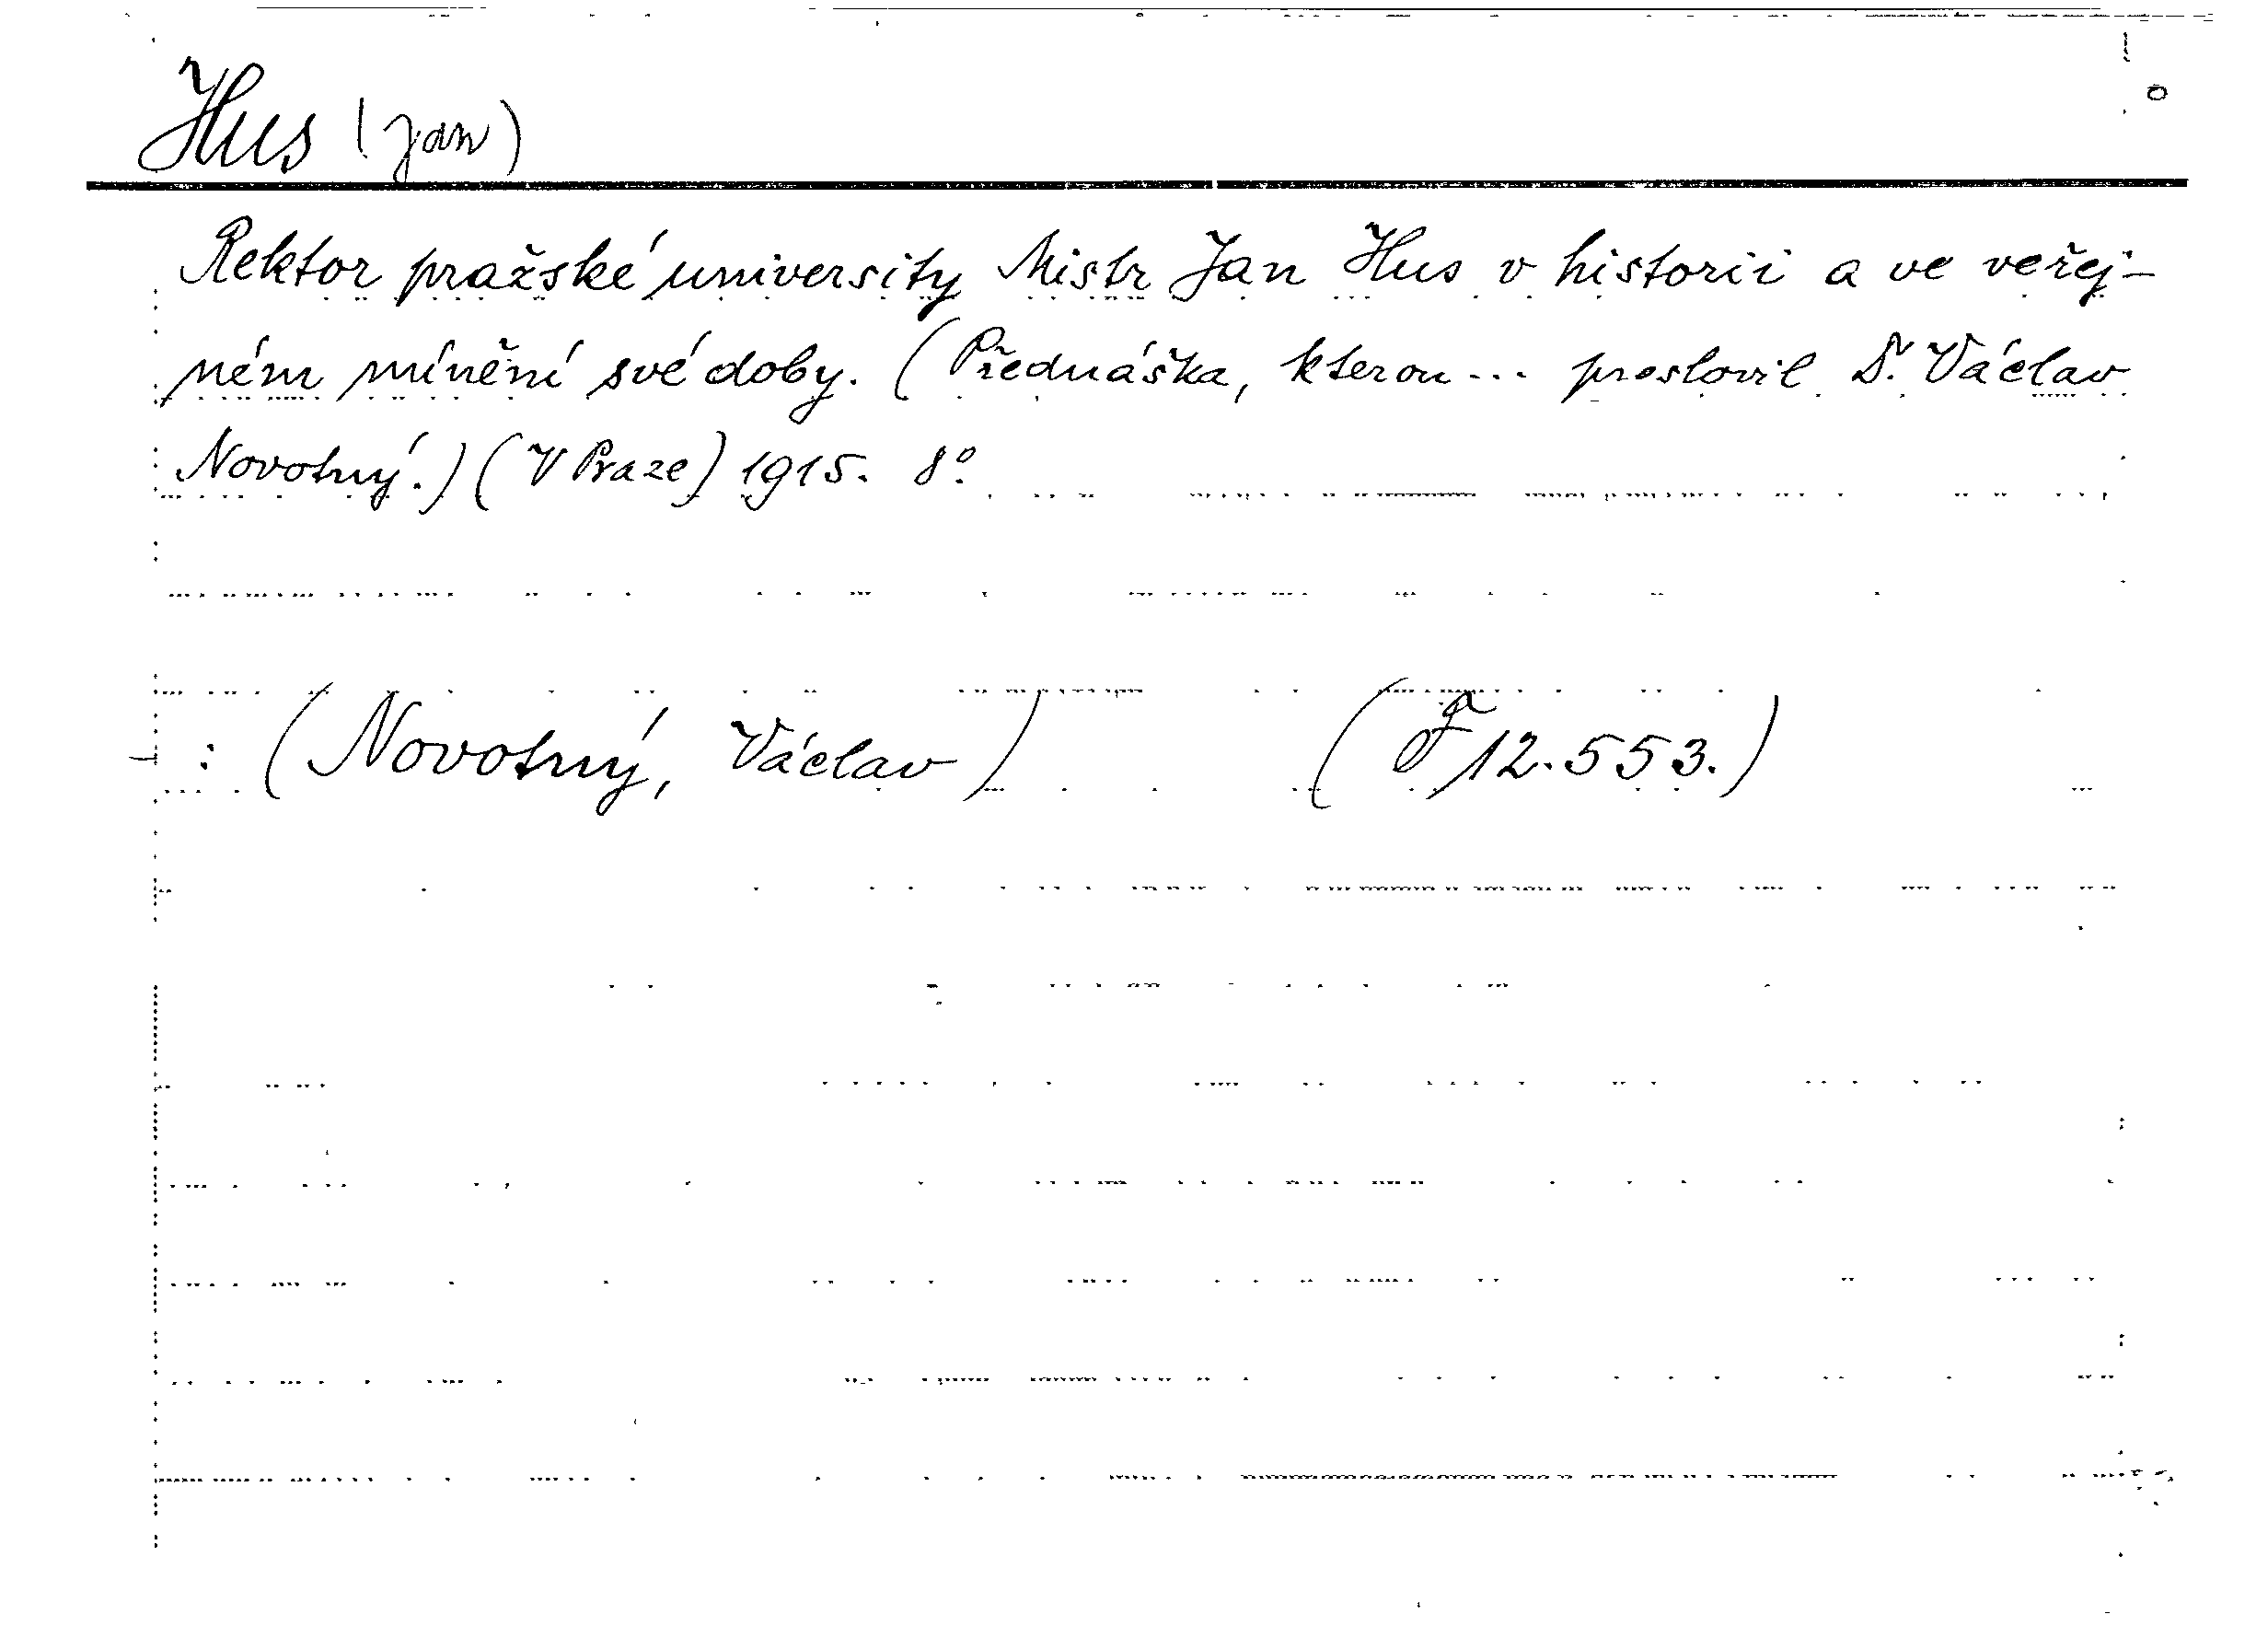 Hus (Jan)
Rektor pražské university Mistr Jan Hus v historii a ve veřej-
ném mínění své doby. (Přednáška, kterou... proslovil Dr. Václav
Novotný.) (V Praze) 1915. 8°.
: (Novotný, Václav) (F 12.553.)